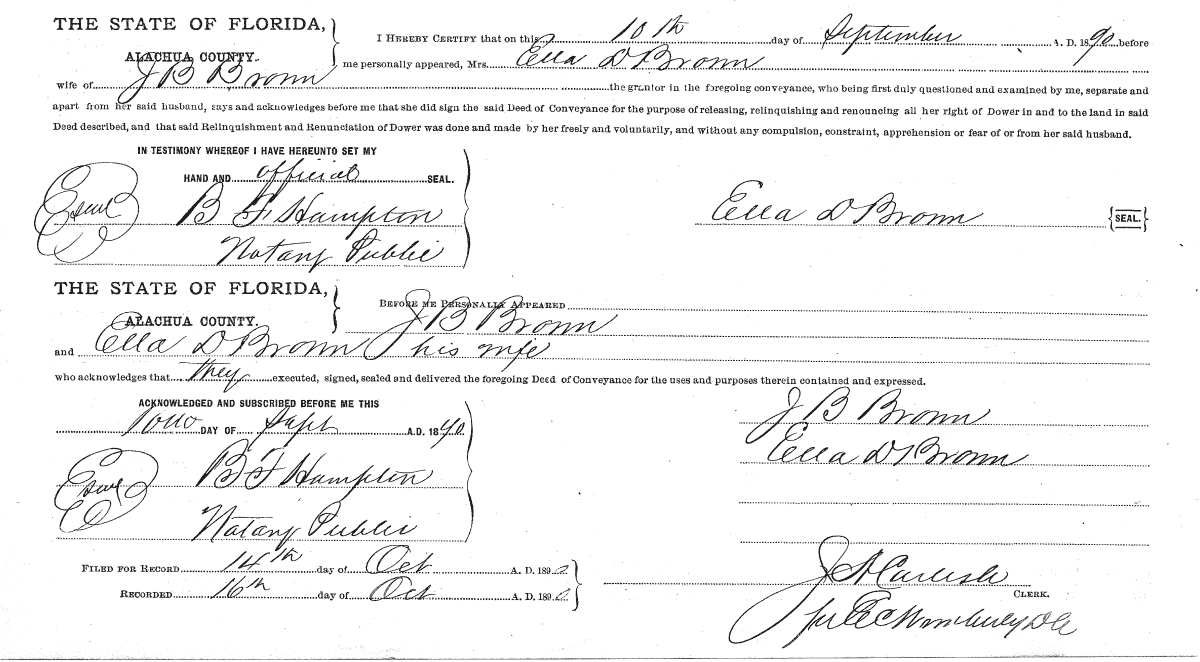 THE STATE OF FLORIDA, } I HEREBY CERTIFY that on this 10th day of September A. D. 1890 before
ALACHUA COUNTY. me personally appeared, Mrs. Ella D Brown
wife of J B Brown the grantor in the foregoing conveyance, who being first duly questioned and examined by me, separate and
apart from her said husband, says and acknowledges before me that she did sign the said Deed of Conveyance for the purpose of releasing, relinquishing and renouncing all her right of Dower in and to the land in said
Deed described, and that said Relinquishment and Renunciation of Dower was done and made by her freely and voluntarily, and without any compulsion, constraint, apprehension or fear of or from her said husband.
IN TESTIMONY WHEREOF I HAVE HEREUNTO SET MY
HAND AND official SEAL.
B F Hampton
Notary Public
Ella D Brown {SEAL.}
THE STATE OF FLORIDA, } BEFORE ME PERSONALLY APPEARED
ALACHUA COUNTY. J B Brown
and Ella D Brown his wife
who acknowledges that they executed, signed, sealed and delivered the foregoing Deed of Conveyance for the uses and purposes therein contained and expressed.
ACKNOWLEDGED AND SUBSCRIBED BEFORE ME THIS
DAY OF Sept A.D. 1890
B F Hampton
Notary Public
J B Brown
Ella D Brown
FILED FOR RECORD 14th day of Oct A. D. 1890
RECORDED 16th day of Oct A. D. 1890
J A Carlisle
CLERK.